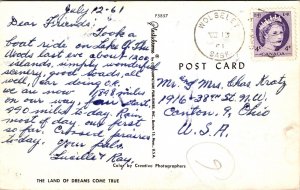 July 12-61
Dear Friends:
Took a
boat ride on Lake Of The
Woods last over about 1200
islands, simply wonderful
scenery, good roads, all
well, car doing O.K.
we are now 1898 miles
on our way, from start
350 miles to-day. Rain
most of day, our first
so far. Crossed prairies
today. Your pals,
Lucille & Ray.
73557
WOLSELEY
13
61
SASK.
CANADA
4
POST CARD
Mr. & Mrs. Chas Kratz
1916-38th St. N.W.
Canton, 9, Ohio
U.S.A.
Color by Creative Photographers
THE LAND OF DREAMS COME TRUE